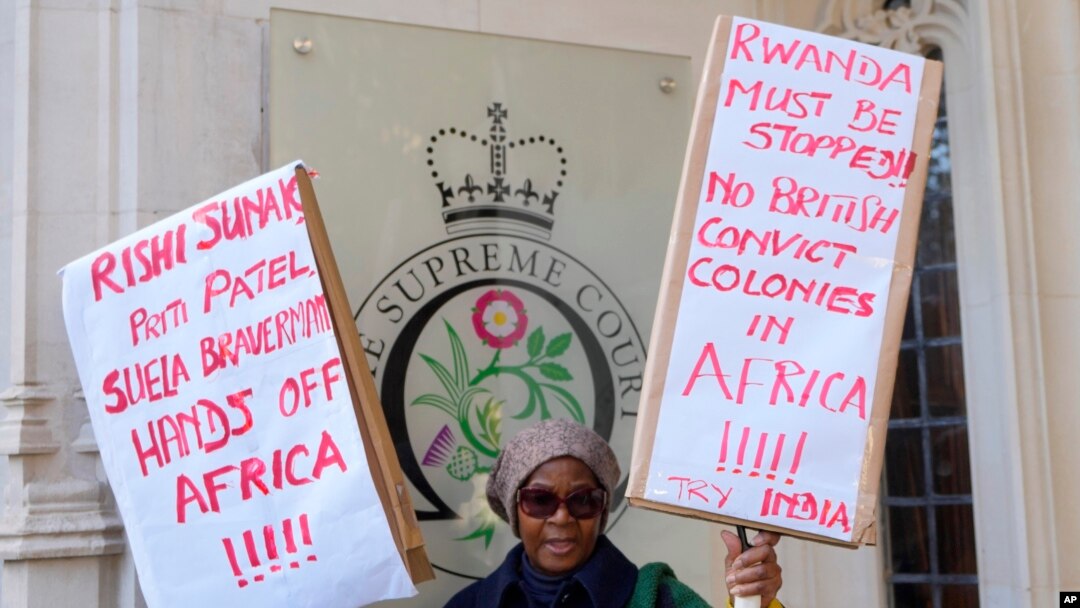 RISHI SUNAK,
PRITI PATEL,
SUELA BRAVERMAN
HANDS OFF
AFRICA
!!!!!
THE SUPREME COURT
RWANDA
MUST BE
STOPPED!!
NO BRITISH
CONVICT
COLONIES
IN
AFRICA
!!!!!
TRY INDIA
AP